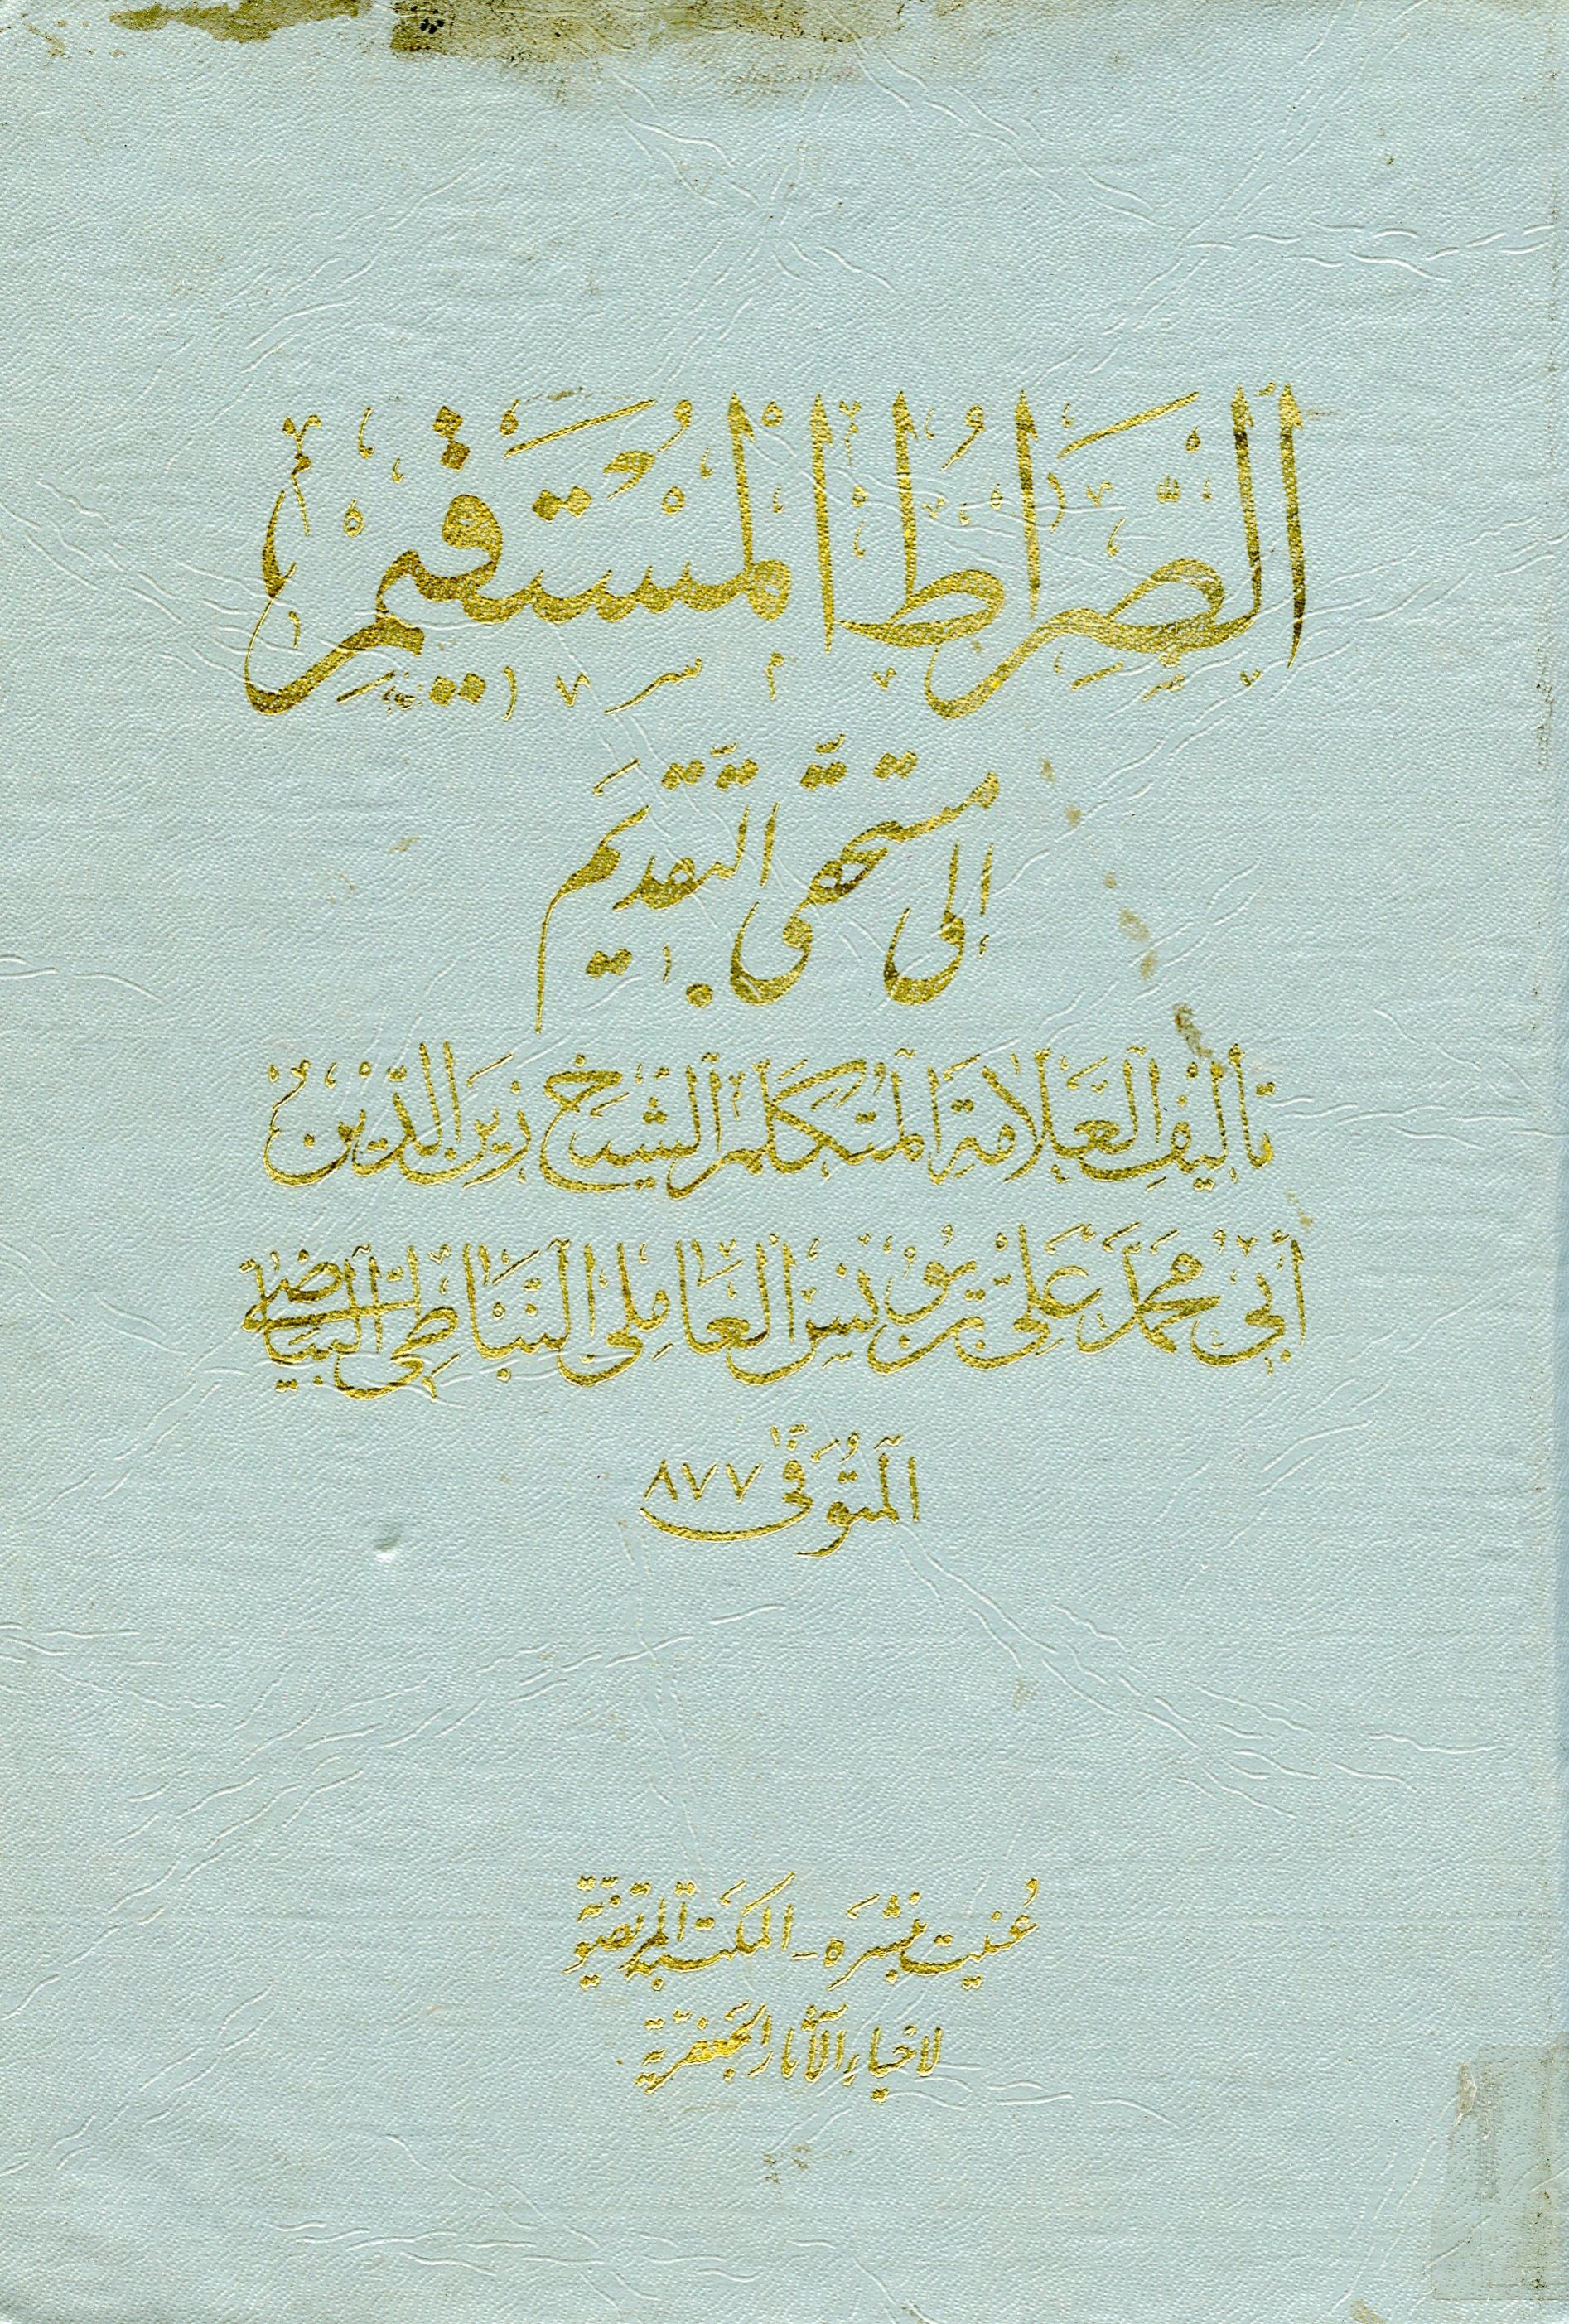 الصِّرَاطُ الْمُسْتَقِيمُ
إلى مستحقّي التّقديم
تأليف العلّامة المتكلم الشيخ زين الدّين
أبي محمّد عليّ بن يونس العاملي النّباطي البياضي
المتوفّى ٨٧٧
عُنيت بنشره - المكتبة المرتضويّة
لاحياء الآثار الجعفريّة